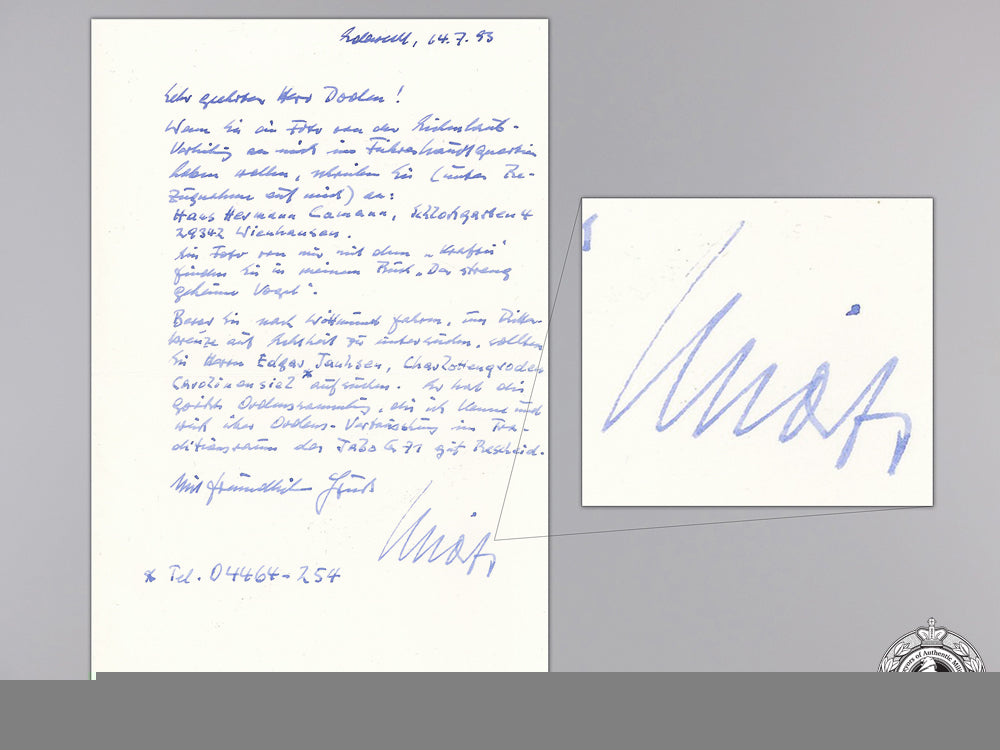 14.7.93
Sehr geehrter Herr Doden!
Wenn Sie ein Foto von der Eichenlaub-
Verleihung an mich im Führerhauptquartier
haben wollen, schreiben Sie (unter Be-
zugnahme auf mich) an:
Hans Hermann Camann, Schloßgarten 4
29342 Wienhausen.
Ein Foto von mir mit dem „
finden Sie in meinem Buch „Der streng
geheime Vogel“.
Bevor Sie nach Wittmund fahren, um Ritter-
kreuze auf Echtheit zu untersuchen, sollten
Sie Herrn Edgar Janhsen, Charlottengroden
Carolinensiel * aufsuchen. Er hat die
größte Ordenssammlung, die ich kenne und
weiß über Ordens- im Tra-
ditionsraum des JaboG 71 gut Bescheid.
Mit freundlichem Gruß
* Tel. 04464-254
of Authentic